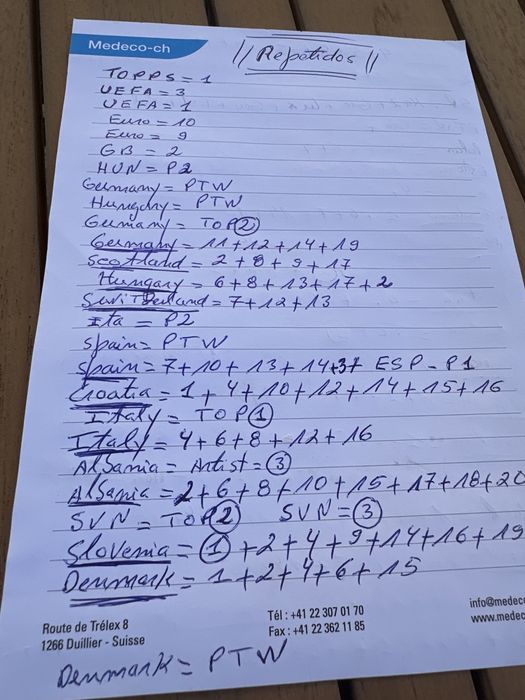 Medeco-ch
// Repetidos //
TOPPS = 1
UEFA = 3
UEFA = 1
Euro = 10
Euro = 9
GB = 2
HUN = P2
Germany = PTW
Hungary = PTW
Germany = TOP 2
Germany = 11+12+14+19
Scotland = 2+8+9+17
Hungary = 6+8+13+17+2
Switzerland = 7+12+13
Ita = P2
Spain = PTW
Spain = 7+10+13+14+3+ ESP-P1
Croatia = 1+4+10+12+14+15+16
Italy = TOP 1
Italy = 4+6+8+12+16
Albania = Artist = 3
Albania = 2+6+8+10+15+17+18+20
SVN = TOP 2 SVN = 3
Slovenia = 1+2+4+9+14+16+19
Denmark = 1+2+4+6+15
Route de Trélex 8
1266 Duillier - Suisse
Tél : +41 22 307 01 70
Fax : +41 22 362 11 85
info@medec
www.medec
Denmark = PTW